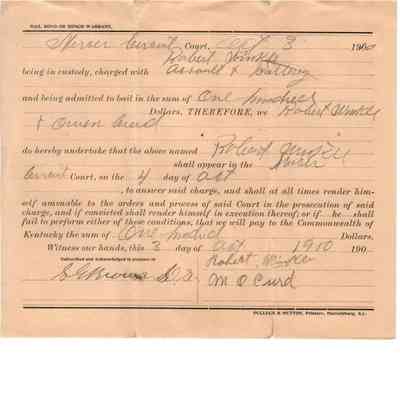 BAIL BOND OR BENCH WARRANT.
Mercer Circuit Court, Oct 3 190
Robert Winkle
being in custody, charged with Assault & Battery
and being admitted to bail in the sum of One hundred
Dollars, THEREFORE, we Robert Winkle
& Owen Curd
do hereby undertake that the above named Robert Winkle
shall appear in the
Circuit Court, on the 4 day of Oct
, to answer said charge, and shall at all times render him-
self amenable to the orders and process of said Court in the prosecution of said
charge, and if convicted shall render himself in execution thereof; or if he shall
fail to perform either of these conditions, that we will pay to the Commonwealth of
Kentucky the sum of One hundred Dollars.
Witness our hands, this 3 day of Oct 1910 190
Subscribed and Acknowledged in presence of
Robert Winkle
M O Curd